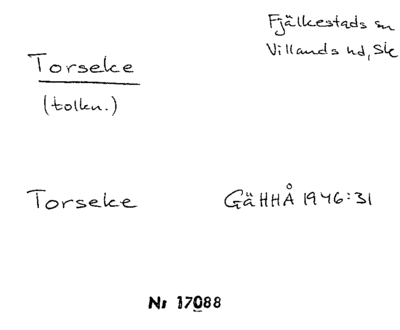 Fjälkestads sn
Villands hd, Sk
Torseke
(tolkn.)
Torseke GäHHÅ 1946:31
Nr 17088